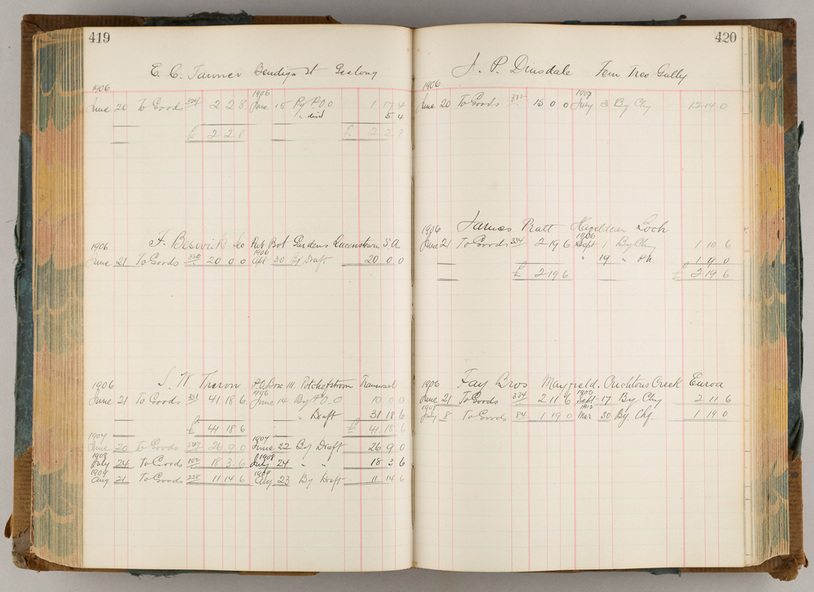 419
E. C. Tanner Bendigo St Geelong
1906 1906
June 20 To Goods 2 2 8 June 15 By P.O.O 1 17 4
" disct 5 4
£ 2 2 8 £ 2 2 8
F. Berwick Co Bot Gardens Queenstown S A
1906 1906
June 21 To Goods 20 0 0 Sept 20 By Draft 20 0 0
J. W. Theron P.O. Box 111 Potchefstroom Transvaal
1906 1906
June 21 To Goods 331 41 18 6 June 14 By P.O.O 10 0 0
" Draft 31 18 6
£ 41 18 6 £ 41 18 6
1907 1907
June 20 To Goods 26 9 0 June 22 By Draft 26 9 0
1908 1908
July 24 To Goods 18 3 6 July 24 " " 18 3 6
1909 1909
Aug 21 To Goods 11 14 6 Aug 23 By Draft 11 14 6
420
J. P. Dinsdale Fern Tree Gully
1906
June 20 To Goods July 3 By Chq
James Pratt Loch
1906 1906
June 21 To Goods 334 2 19 6 Sept 1 By Chq 1 10 6
" 19 "
£ 2 19 6 £ 2 19 6
Fay Bros Mayfield. Crichtons Creek Euroa
1906
June 21 To Goods 334 2 11 6 Sept 17 By Chq 2 11 6
July 8 To Goods 84 1 19 0 Mar 30 By Chq. 1 19 0